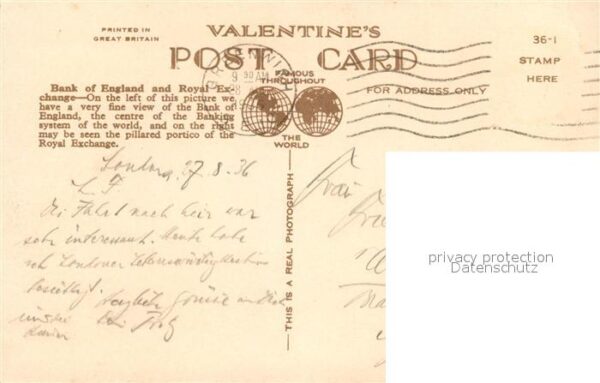 PRINTED IN
GREAT BRITAIN
VALENTINE'S
POST CARD
36-1
STAMP
HERE
9 30 AM
FAMOUS
THROUGHOUT
THE
WORLD
FOR ADDRESS ONLY
Bank of England and Royal Ex-
change—On the left of this picture we
have a very fine view of the Bank of
England, the centre of the Banking
system of the world, and on the right
may be seen the pillared portico of the
Royal Exchange.
THIS IS A REAL PHOTOGRAPH
London, 27.8.36
die Fahrt nach hier war
sehr interessant. Heute habe
ich Londoner
besichtigt. Herzliche Grüsse an Dich
Frau
privacy protection
Datenschutz